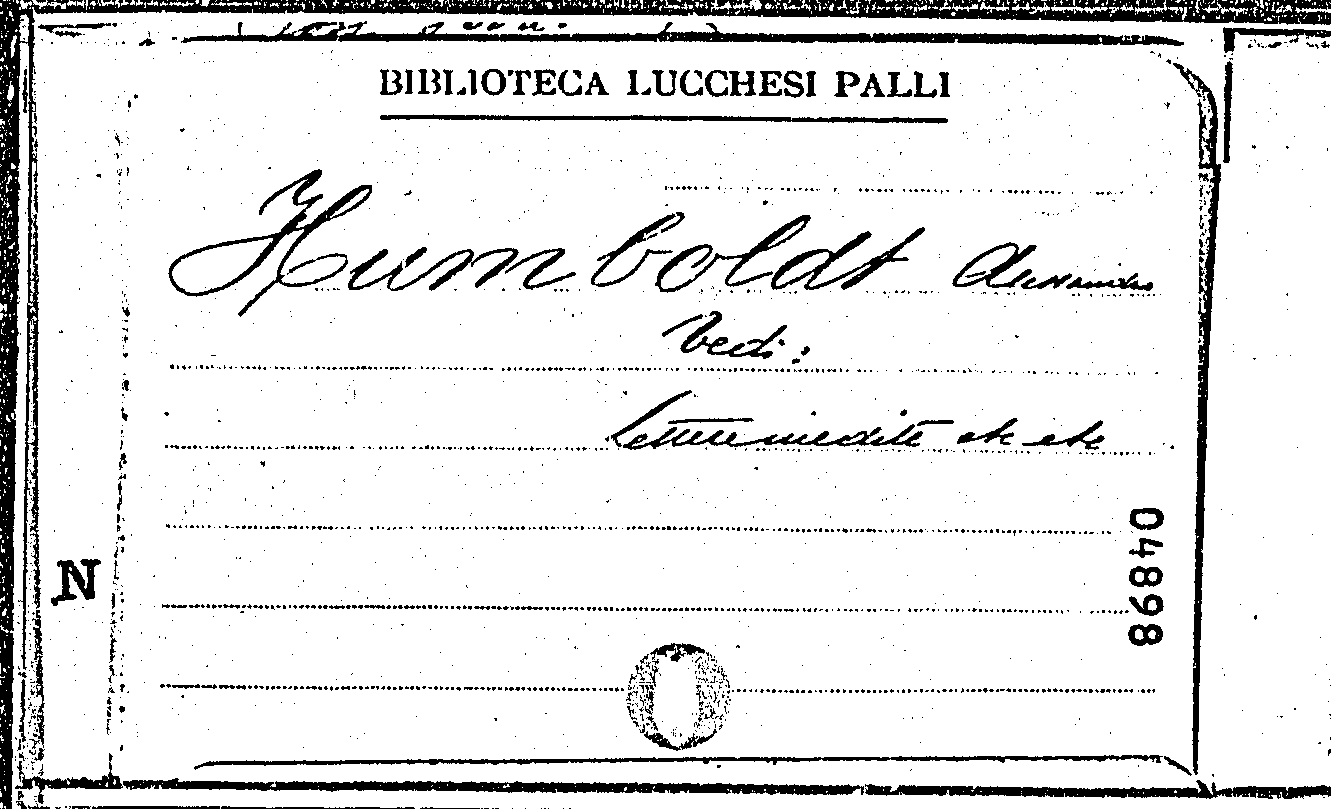 BIBLIOTECA LUCCHESI PALLI
Humboldt Alessandro
Vedi:
Lettere inedite etc etc
04898
N